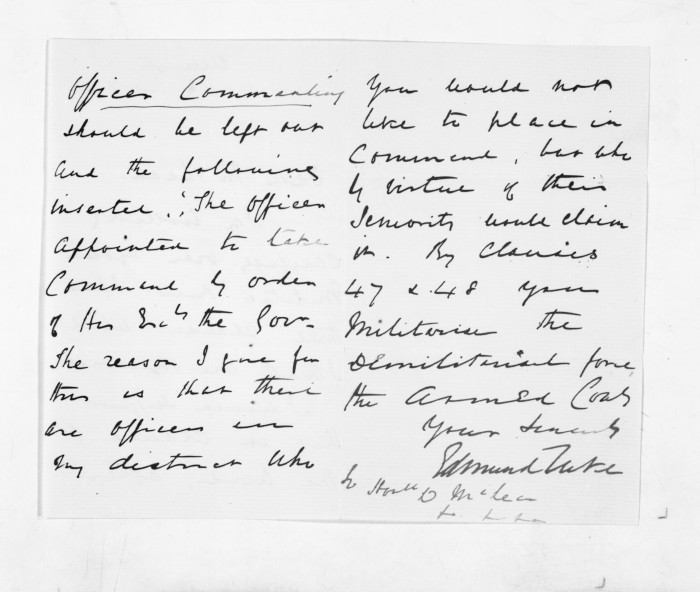 Officer Commanding
should be left out
and the following
inserted, "The Officer
appointed to take
Command by order
of His Excy the Govr.
The reason I give for
this is that there
are officers in
my district who
You would not
like to place in
Command, but who
by virtue of their
Seniority would claim
it. By Clauses
47 & 48 you
Militarise the
Demilitarised force
the Armed Consty
Yours sincerely
Edmund Tuke
To Honble D McLean